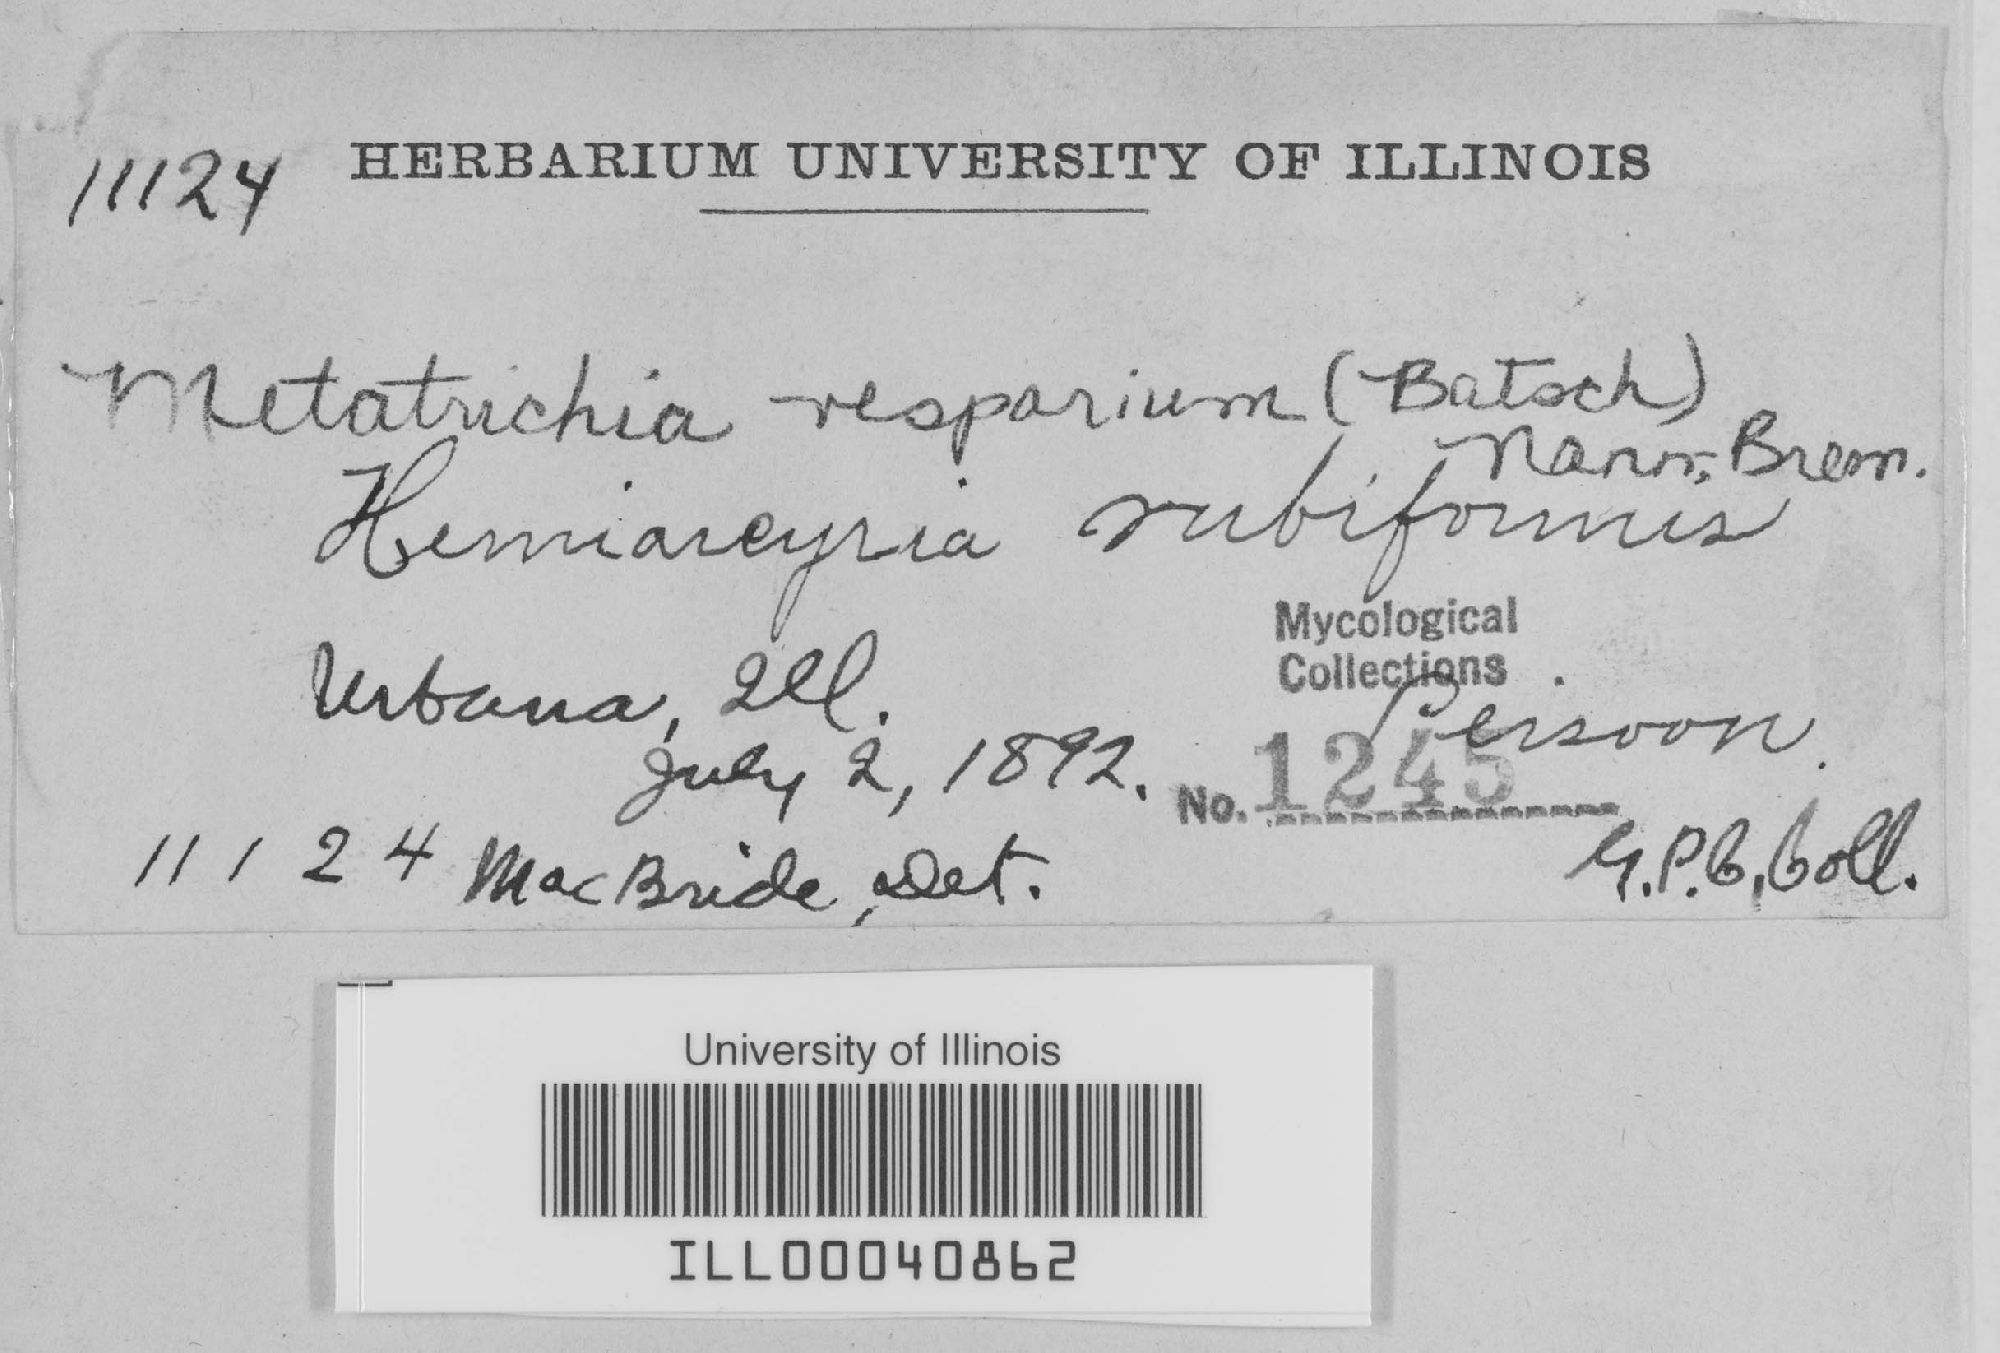 11124 HERBARIUM UNIVERSITY OF ILLINOIS
Metatrichia vesparium (Batsch)
Nann.-Brem.
Hemiarcyria rubiformis
Mycological
Collections
Urbana, Ill.
Persoon.
July 2, 1892.
No. 1245
11124 MacBride, Det.
G.P.C, Coll.
University of Illinois
ILL00040862